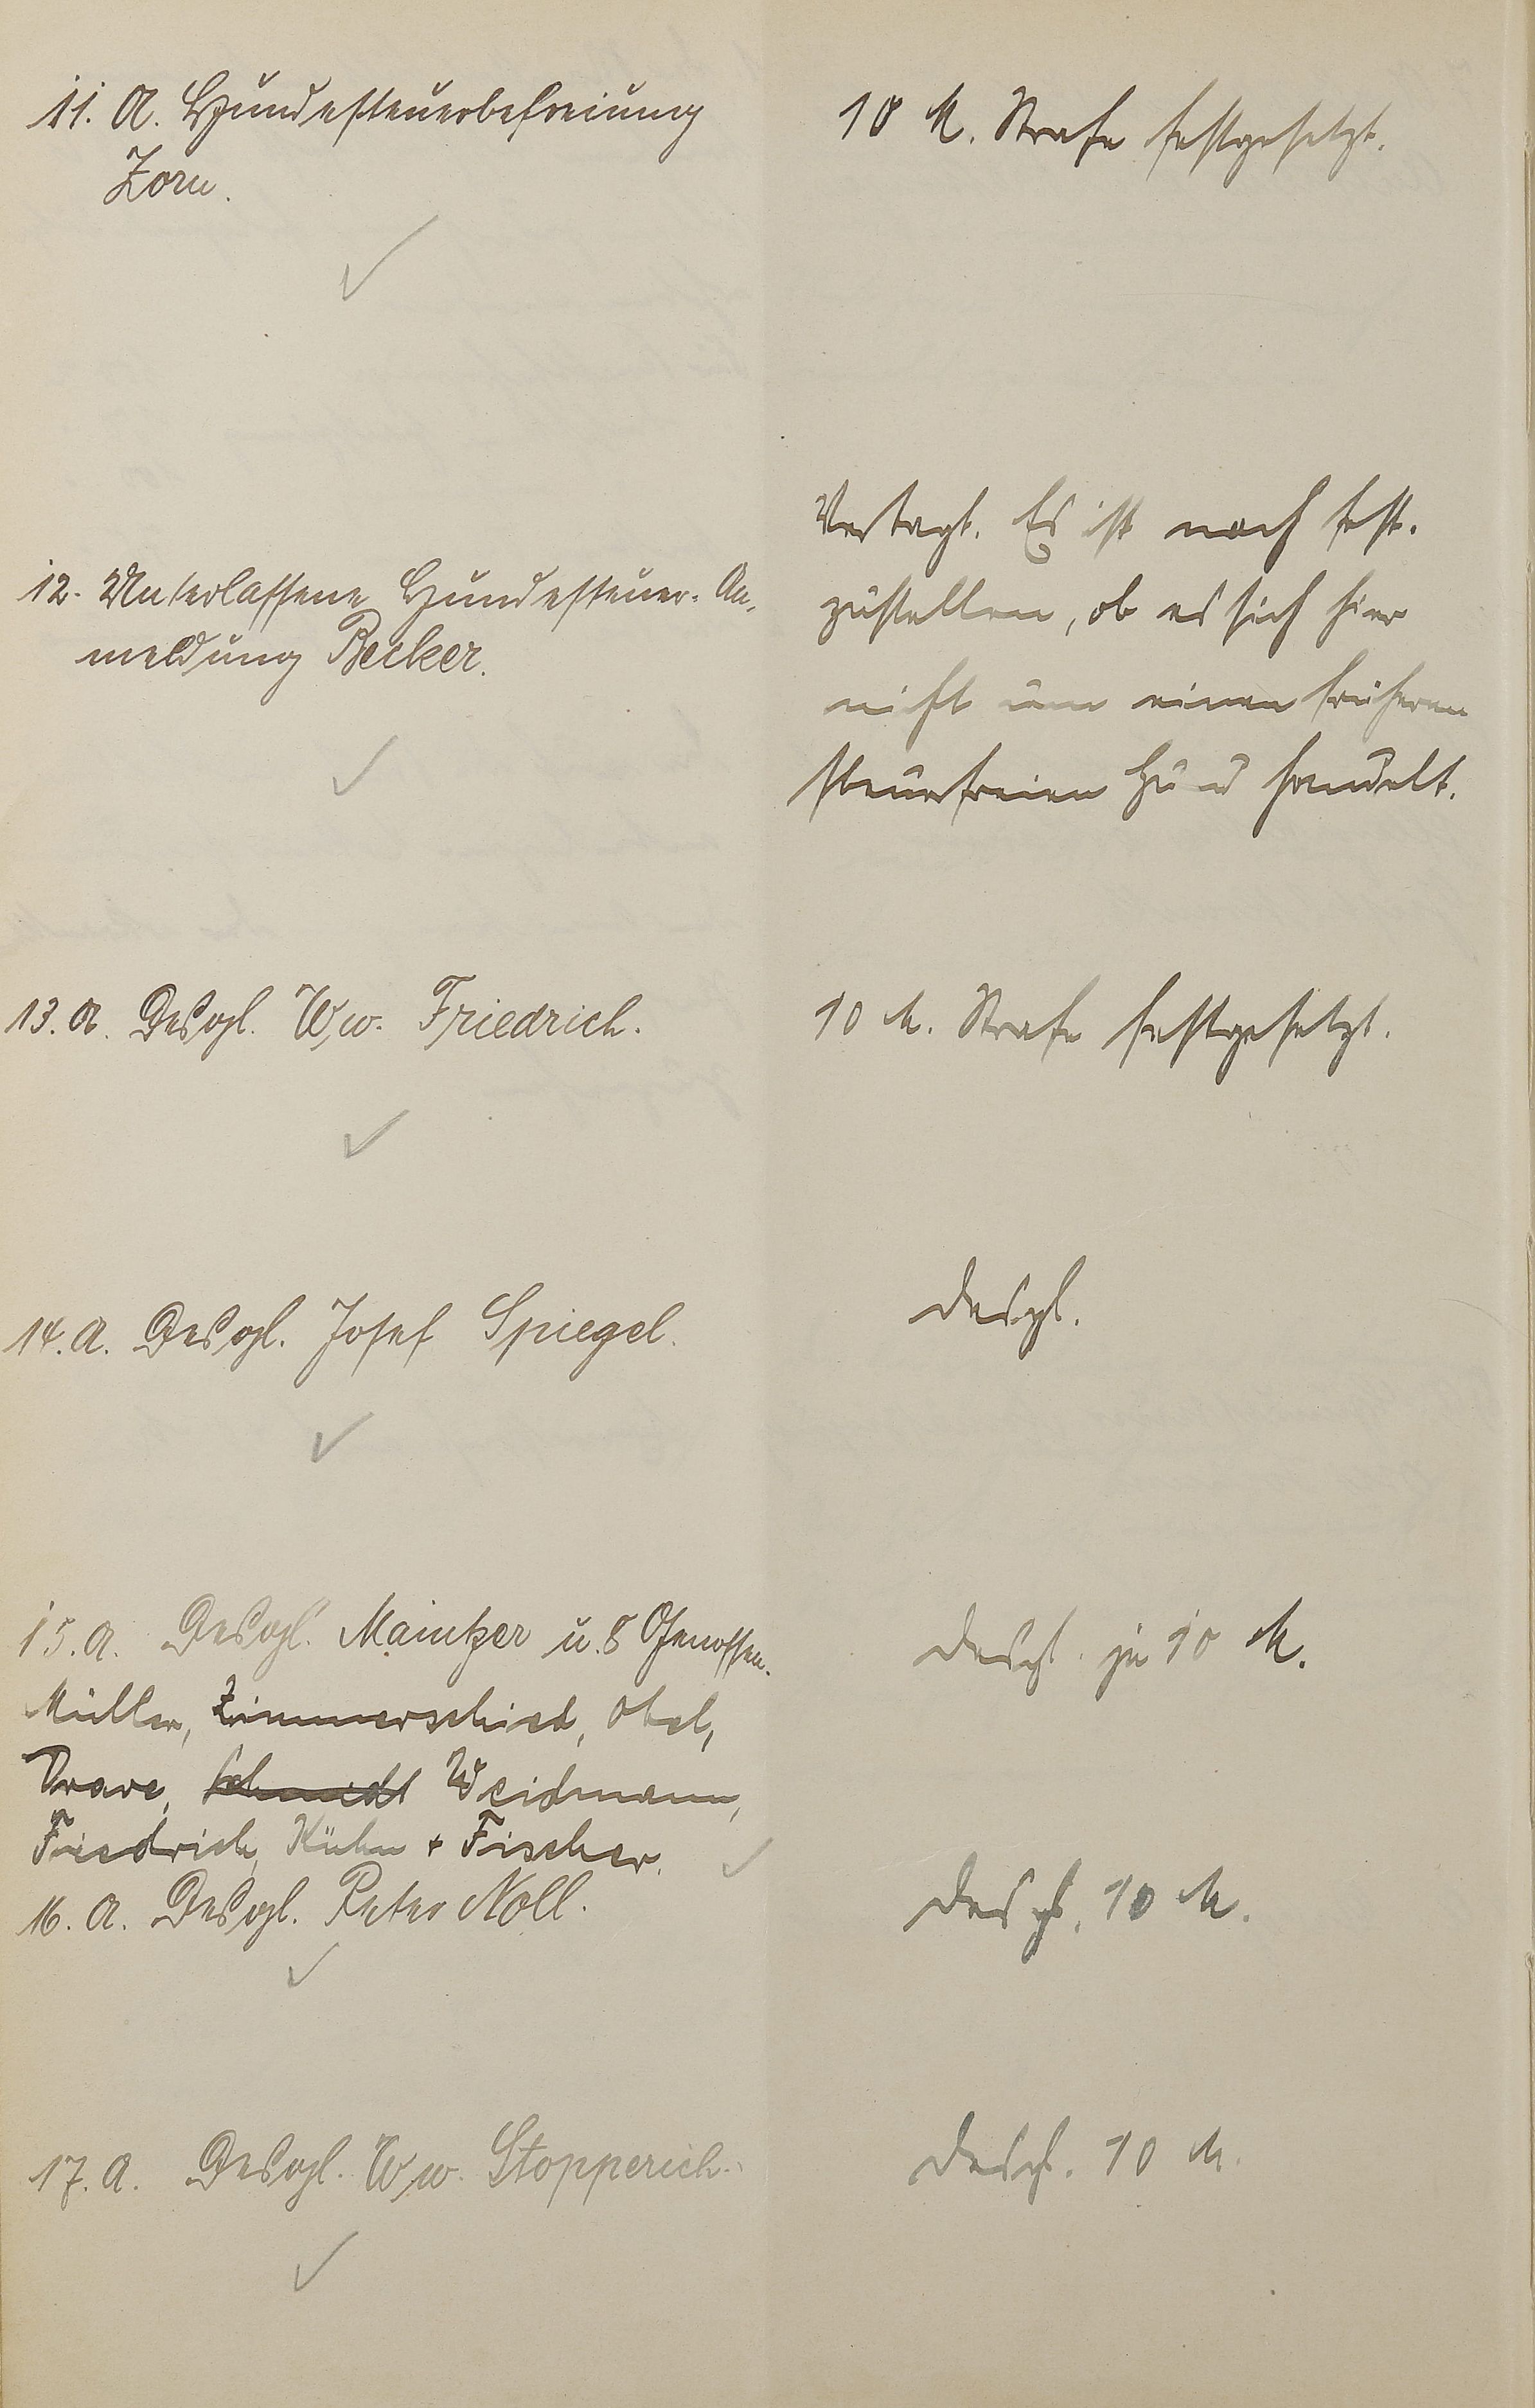 11. A. Hundesteuerbefreiung
Zorn.
10 M. Strafe festgesetzt.
12. Unterlassene Hundesteuer-An-
meldung Becker.
Vertagt. Es ist noch fest-
zustellen, ob es sich hier
nicht um einen früheren
steuerfreien Hund handelt.
13. A. Desgl. Ww. Friedrich.
10 M. Strafe festgesetzt.
14. A. Desgl. Josef Spiegel.
desgl.
15. A. Desgl. Maintzer u. 8 Genossen.
Müller, Zimmerschied, Obel,
Drave, Schmidt Weidmann,
Friedrich, Kühn + Fischer.
desgl. je 10 M.
16. A. Desgl. Peter Noll.
desgl. 10 M.
17. A. Desgl. Ww. Stopperich.
desgl. 10 M.